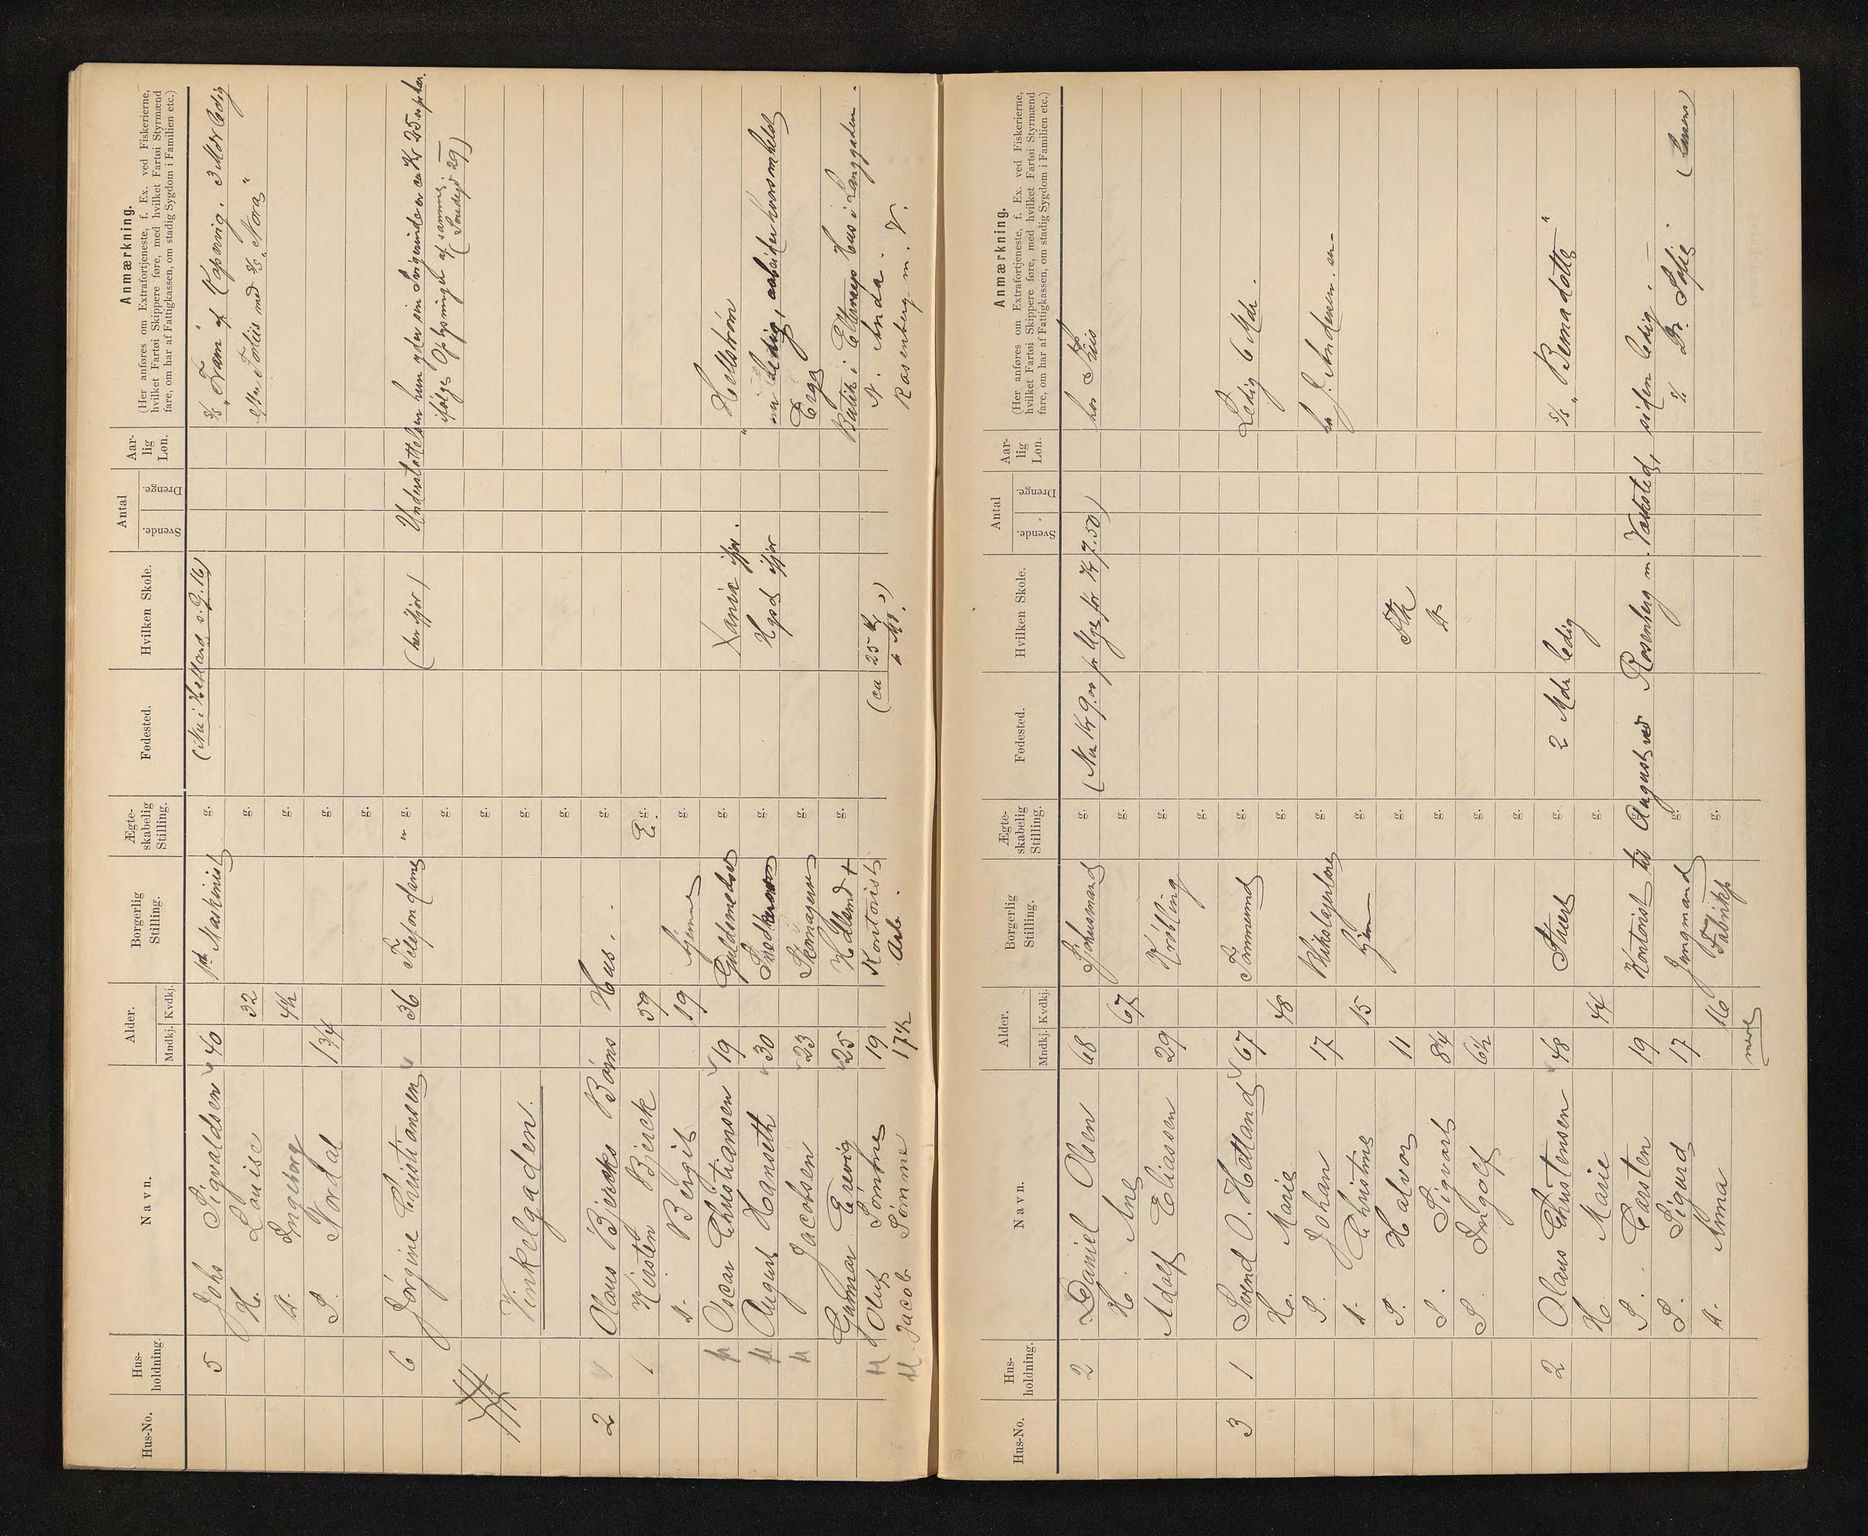 Hus-No.
Hus-
holdning.
Navn.
Alder.
Mndkj. Kvdkj.
Borgerlig
Stilling.
Ægte-
skabelig
Stilling.
Fødested.
Hvilken Skole.
Antal
Svende. Drenge.
Aar-
lig
Løn.
Anmærkning.
(Her anføres om Extrafortjeneste, f. Ex. ved Fiskerierne,
hvilket Fartøi Skippere føre, med hvilket Fartøi Styrmænd
fare, om har af Fattigkassen, om stadig Sygdom i Familien etc.)
5 Johs Sigvaldsen 40 Maskinist g. S/S "Fram" af Kopervig. 3 Mdr ledig
H. Lovise 32 g. med S/S "Nora"
d. Ingeborg 4½ g.
S. Tordal 1¾ g.
g.
6 Jørgine Christiansen 36 Telefondame g. (her ifjor) Understøttelsen hun yder sin Svigerinde er ca Kr 25 
ifølge Opløsninger af samme.
g.
g.
Vinkelgaden.
g.
g.
2 Olaus Bjercks Børns Hus. g.
1 Kirsten Bjerck 59 E. g.
d. Bergit 19 hjemme g.
Oscar Christiansen 19 Guldsmedsv g. Xania ifjor. Hellstrøm
August Hanseth 30 g. Hgsd ifjor nu ledig, arbeider
Jacobsen 23 Skomagersv g. Egg
Gunnar Erevig 25 g. Butik i Hus i Langgaden.
Oluf Sømme 19 Kontorist (ca 25 Kr
Jacob Sømme 17½ Arb. Rosenberg m. V.
Hus-No.
Hus-
holdning.
Navn.
Alder.
Mndkj. Kvdkj.
Borgerlig
Stilling.
Ægte-
skabelig
Stilling.
Fødested.
Hvilken Skole.
Antal
Svende. Drenge.
Aar-
lig
Løn.
Anmærkning.
(Her anføres om Extrafortjeneste, f. Ex. ved Fiskerierne,
hvilket Fartøi Skippere føre, med hvilket Fartøi Styrmænd
fare, om har af Fattigkassen, om stadig Sygdom i Familien etc.)
2 Daniel Olsen 68 Sjøhusmand g. (Nu Kr 9.00 pr Uge før Kr 7.50) hos
H. Ane 67 g.
Adolf Eliassen 29 g.
g.
3 1 Svend O. Hetland 67 Tømmermd g. Ledig 6 Mdr.
H. Marie 48 g.
S. Johan 17 Blikslagerlære g. J. Andersen sen-
d. Christine 15 hjem g.
S. Halvor 11 g.
S. Sigvart 8¼ g.
S. Ingolf 6½ g.
g.
2 Olaus Christensen 48 Stuert g. 2 Mdr ledig S/S "Bernadotte"
H. Marie 44 g.
S. Carsten 19 Kontorist til August ved Rosenberg m. Værksted, siden ledig.
S. Sigurd 17 Jungmand g. Sofie
d. Anna 16 Fabrikkp g.